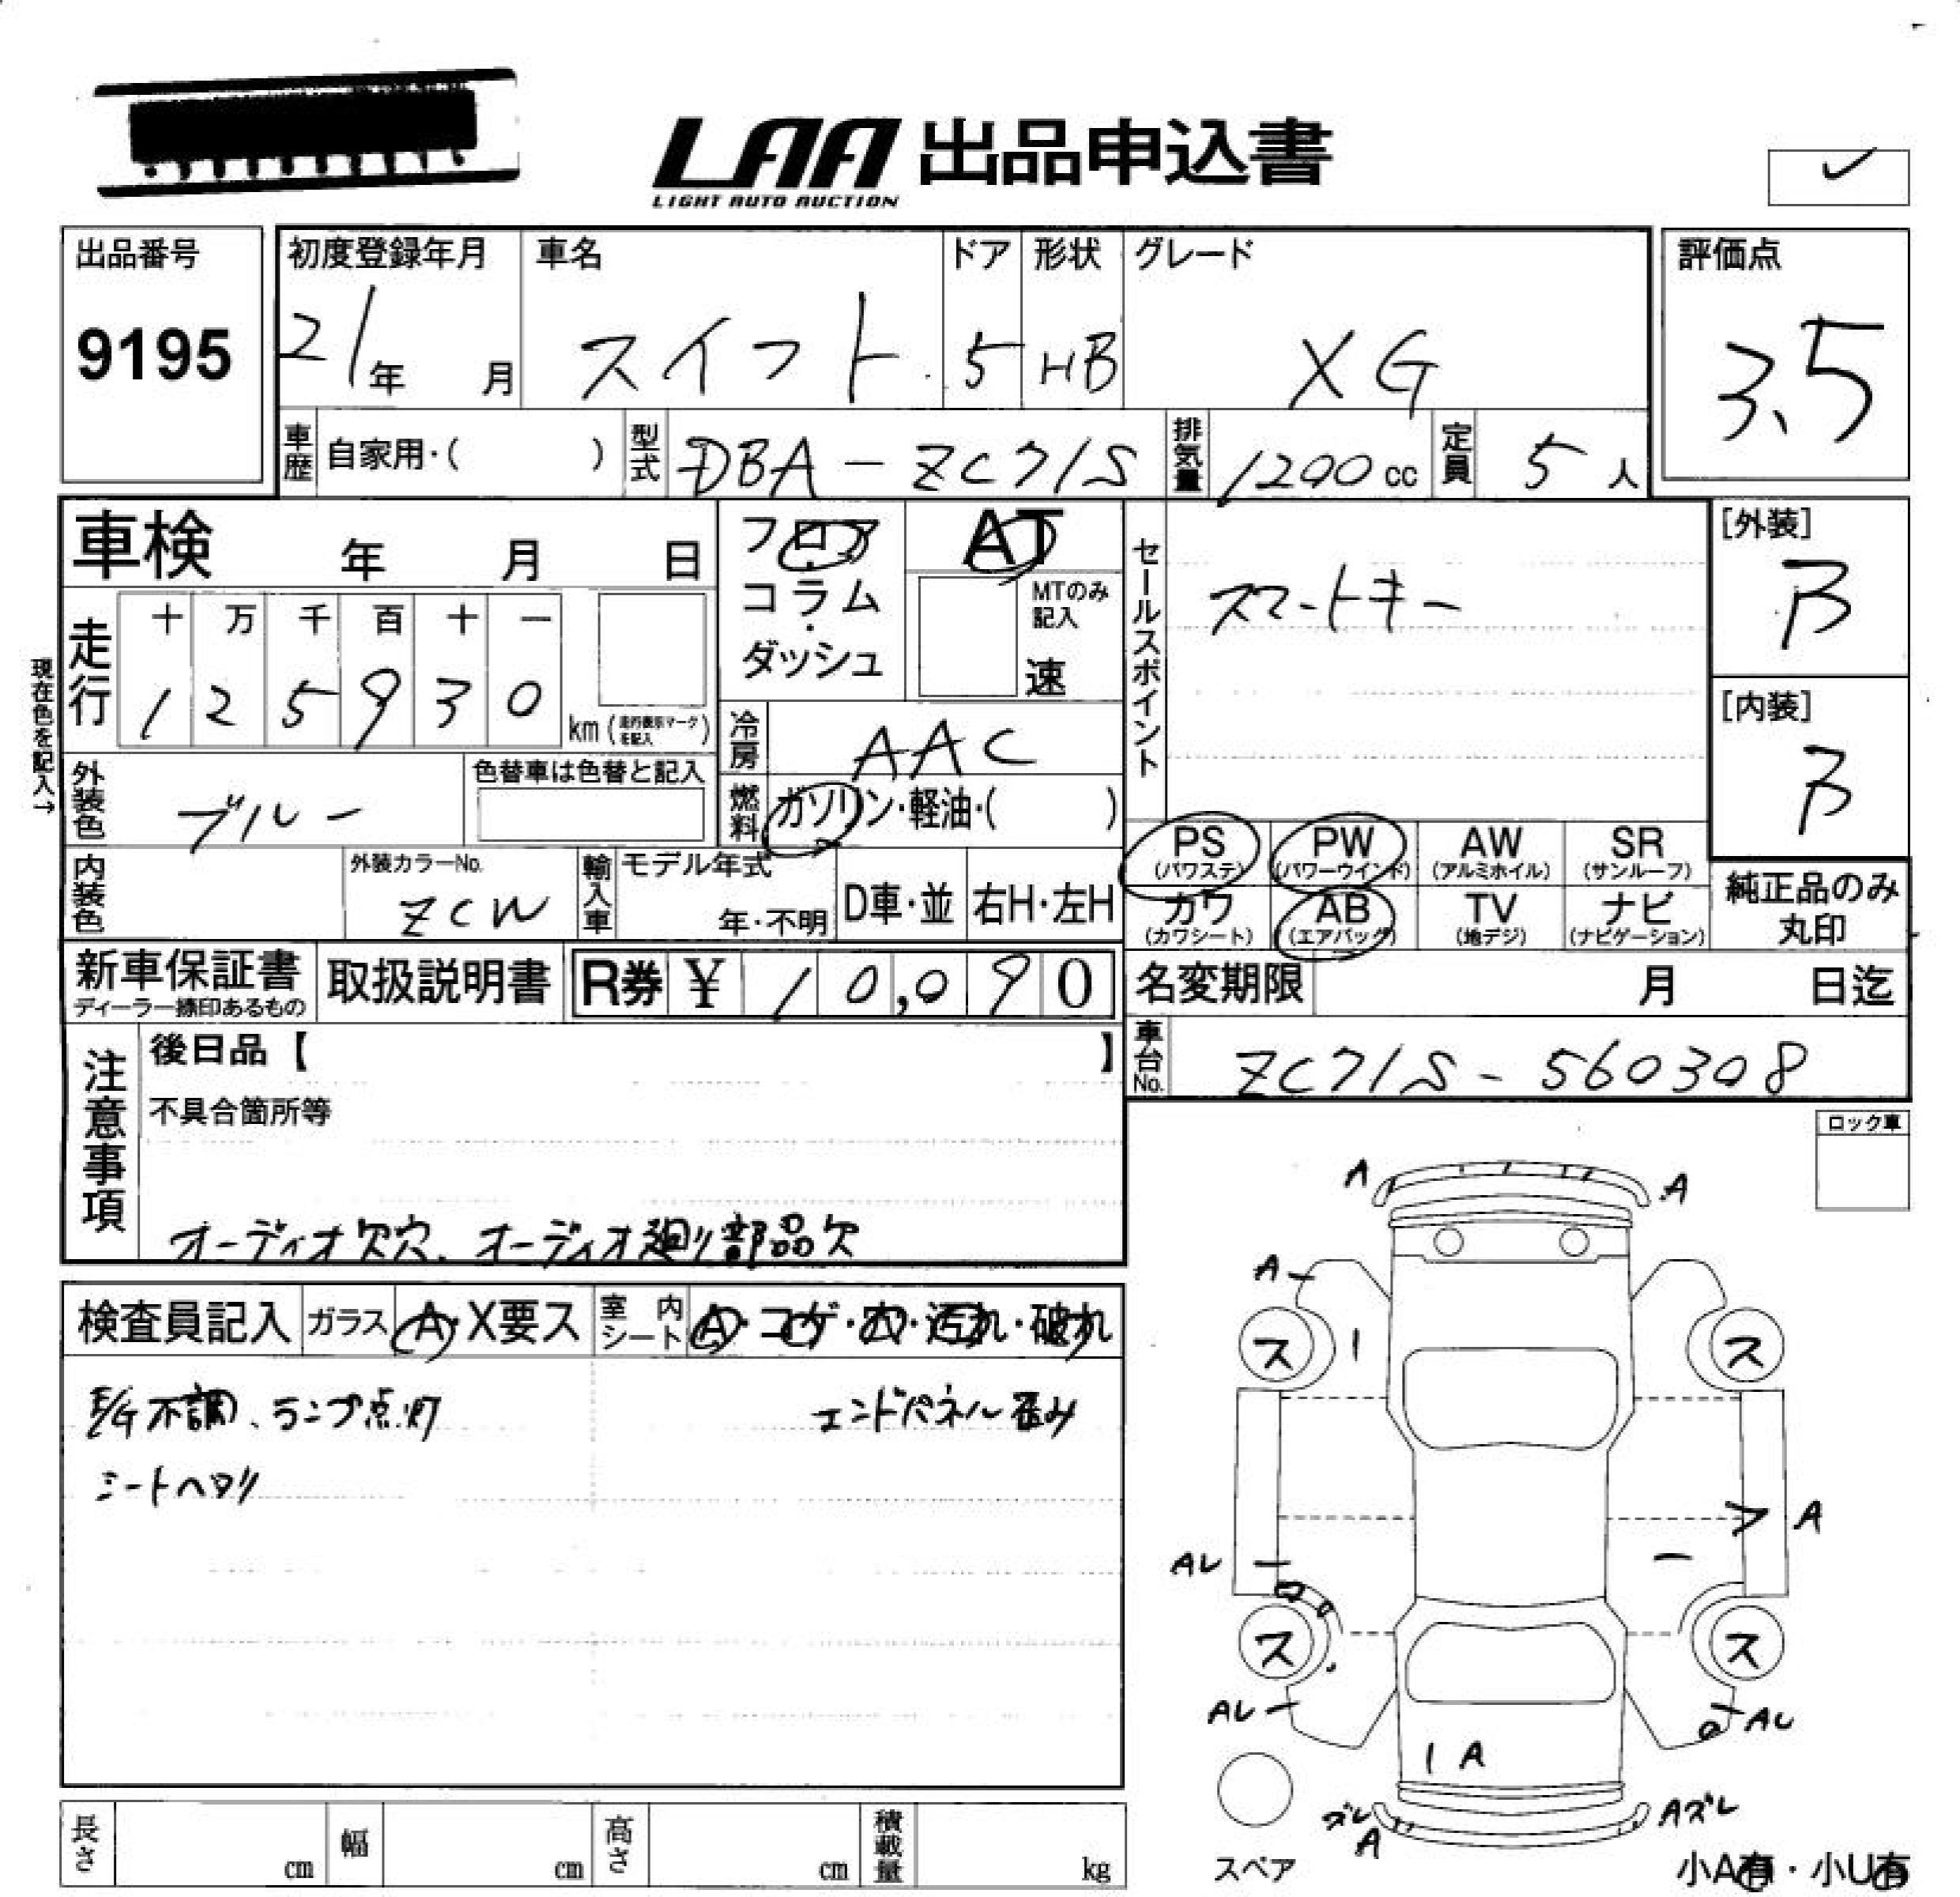 LAA 出品申込書
LIGHT AUTO AUCTION
✓
出品番号
9195
初度登録年月
21年 月
車名
スイフト
ドア
5
形状
HB
グレード
XG
評価点
3.5
車歴 自家用・( )
型式 DBA-ZC71S
排気量 1200cc
定員 5人
車検 年 月 日
フロア・コラム・ダッシュ
AT
MTのみ記入
速
セールスポイント
スマートキー
[外装]
B
[内装]
B
現在色を記入→
走行
十 万 千 百 十 一
1 2 5 9 3 0
km (走行表示マークを記入)
冷房 AAC
燃料 ガソリン・軽油・( )
外装色 ブルー
色替車は色替と記入
内装色
外装カラーNo.
ZCW
輸入車
モデル年式
年・不明
D車・並
右H・左H
PS (パワステ)
PW (パワーウインド)
AW (アルミホイル)
SR (サンルーフ)
カワ (カワシート)
AB (エアバッグ)
TV (地デジ)
ナビ (ナビゲーション)
純正品のみ丸印
新車保証書
ディーラー捺印あるもの
取扱説明書
R券 ¥ 10,090
名変期限 月 日迄
車台No. ZC71S-560308
注意事項
後日品【 】
不具合箇所等
オーディオ欠穴、オーディオ廻り部品欠
ロック車
検査員記入
ガラス A・X要ス
室内シート A・コゲ・穴・汚れ・破れ
E/G不調、ランプ点灯
エンドパネル歪み
シートヘタリ
A A
A
ス ス
A
AL
ス ス
AL AL
A
ズレ A
Aズレ
スペア
小A有・小U有
長さ cm
幅 cm
高さ cm
積載量 kg